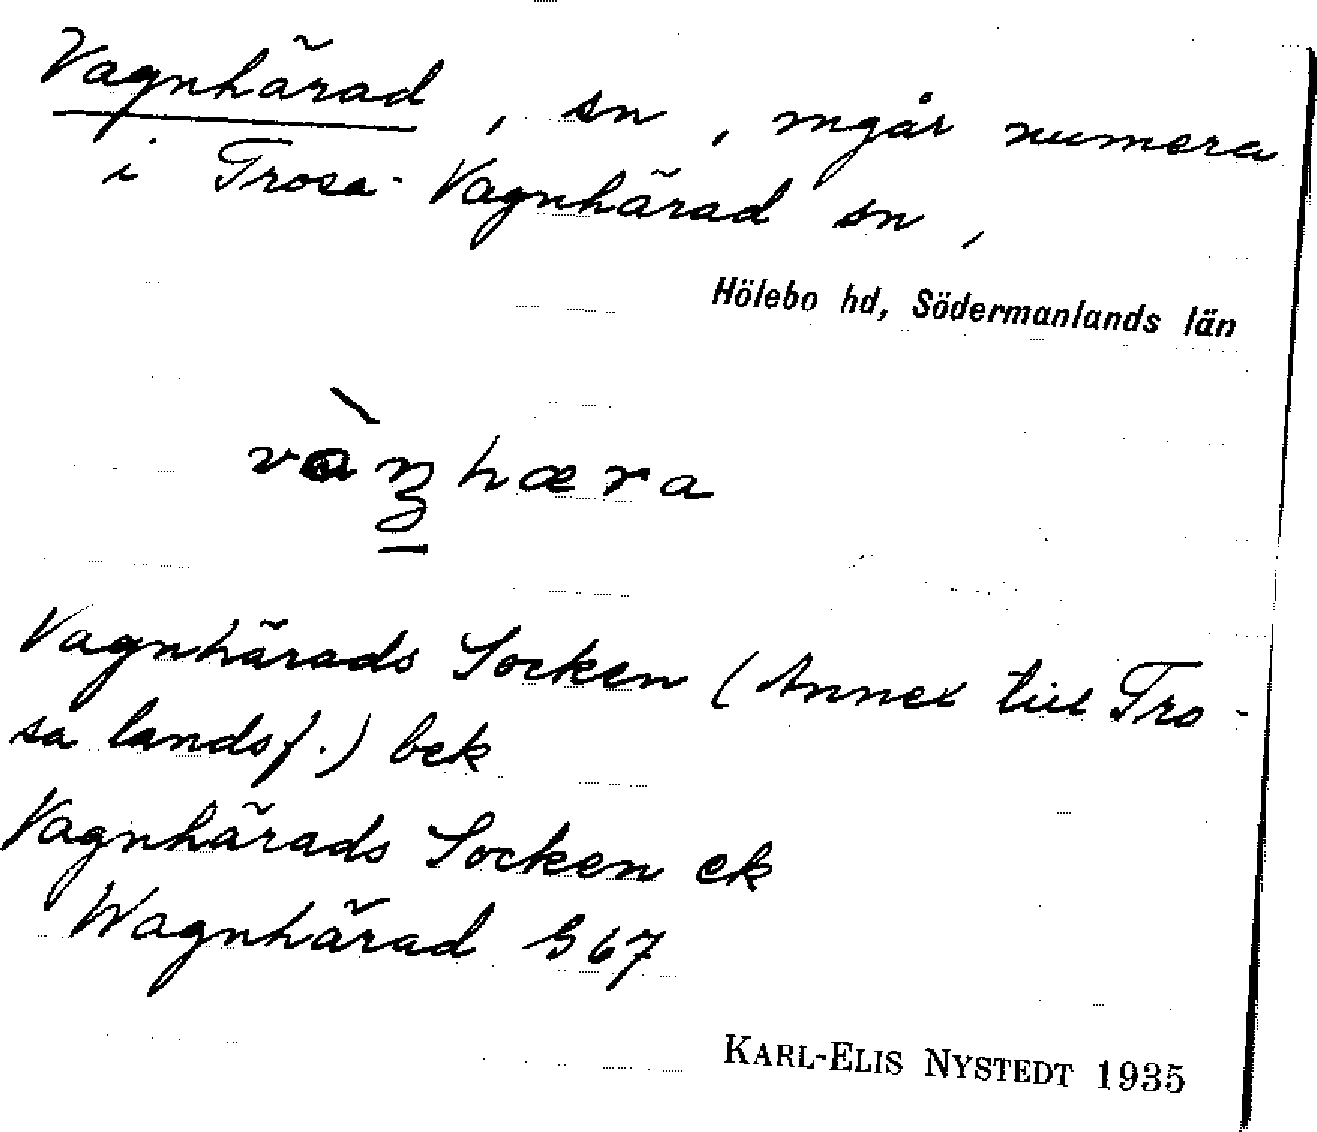 Vagnhärad, sn, ingår numera
i Trosa-Vagnhärad sn,
Hölebo hd, Södermanlands län
Vagnhärads Socken (Annex till Tro-
sa landsf.) bek
Vagnhärads Socken ek
Wagnhärad G 67
KARL-ELIS NYSTEDT 1935